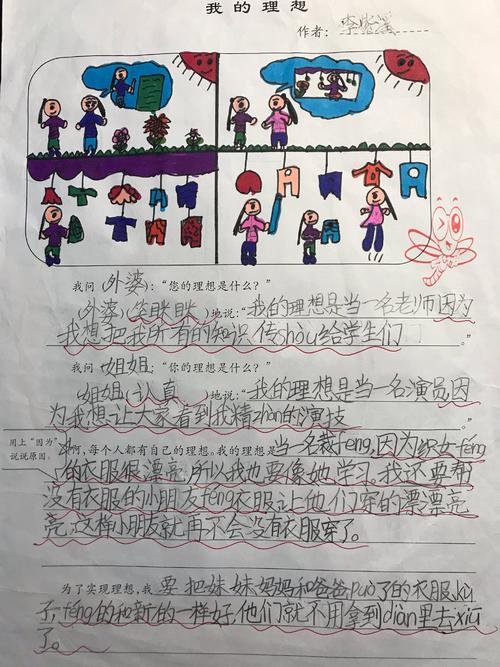 我的理想
作者：李
我问（外婆）：“您的理想是什么？”
（外婆）（笑眯眯）地说：“我的理想是当一名老师因为
我想把我所有的知识传shòu给学生们”
我问（姐姐）：“你的理想是什么？”
（姐姐）（认真）地说：“我的理想是当一名演员因
为我想让大家看到我精zhàn的演技”
用上“因为”
说说原因。
啊，每个人都有自己的理想。我的理想是当一名裁feng，因为
的衣服很漂亮，所以我也要像她学习。我还要帮
没有衣服的小朋友féng衣服，让他们穿的漂漂亮
亮，这样小朋友就再不会没有衣服穿了。
为了实现理想，我要把妹妹妈妈和爸爸può了的衣服，kù
子，féng的和新的一样好，他们就不用拿到diàn里去xiū
了。